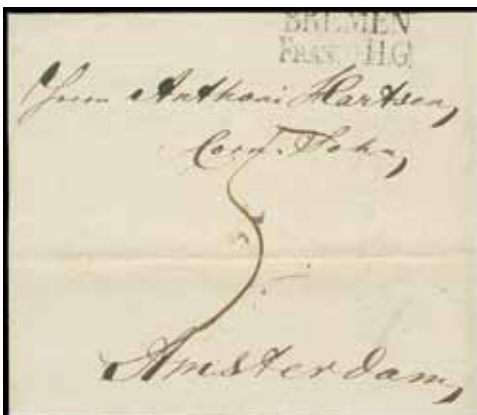 BREMEN
FRANCO HG
Herrn Anthoni Hartsen,
Corn. Sohn,
Amsterdam,